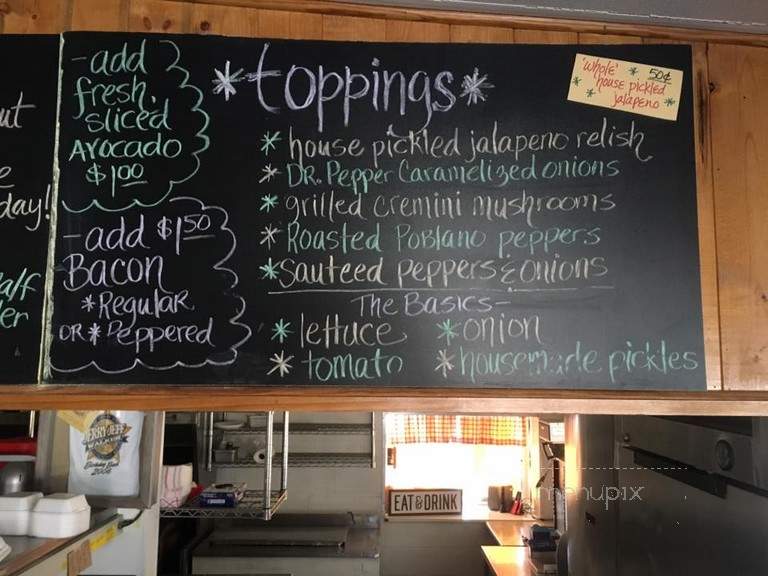 - add
fresh
sliced
Avocado
$1.00
- add $1.50
Bacon
* Regular
OR * Peppered
* toppings *
* house pickled jalapeno relish
* DR. Pepper Caramelized onions
* grilled cremini mushrooms
* Roasted Poblano peppers
* Sauteed peppers & onions
The Basics -
* lettuce * onion
* tomato * housemade pickles
'whole' * 50¢
* house pickled
* jalapeno *
day!
JERRY JEFF
WALKER
Birthday Bash
EAT & DRINK
menupix